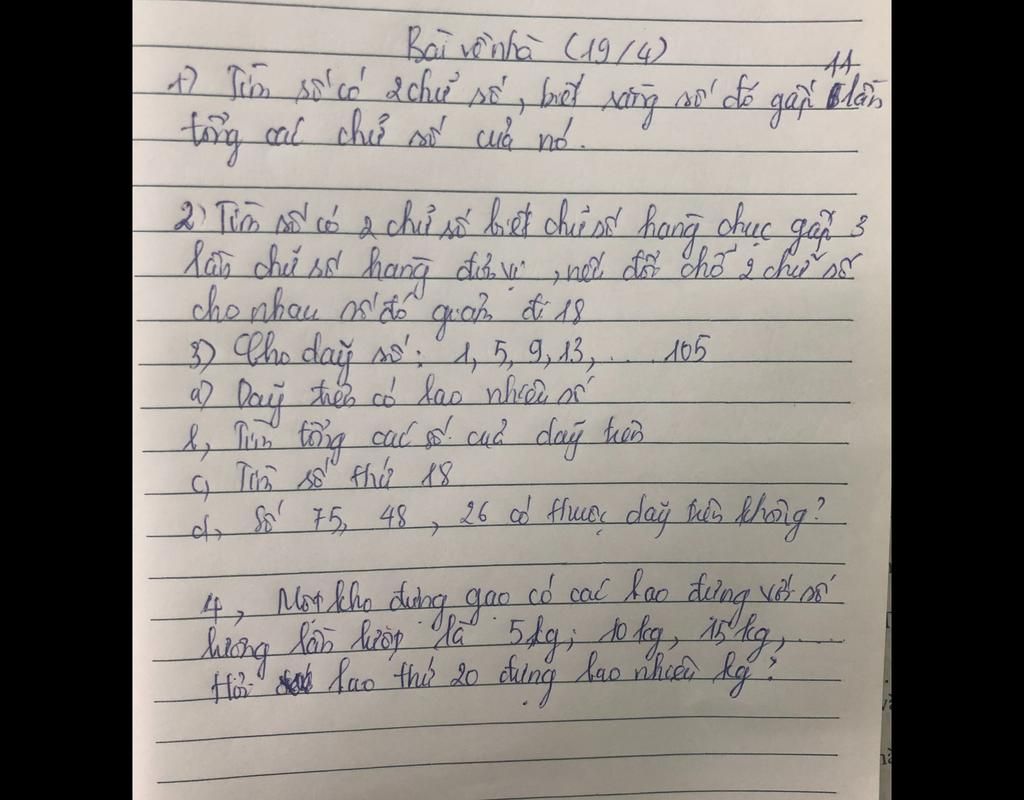 Bài về nhà (19/4)
11
1) Tìm số có 2 chữ số, biết rằng số đó gấp lần
tổng các chữ số của nó.
2) Tìm số có 2 chữ số biết chữ số hàng chục gấp 3
lần chữ số hàng đơn vị, nếu đổi chỗ 2 chữ số
cho nhau số đó giảm đi 18
3) Cho dãy số: 1, 5, 9, 13, ... 105
a) Dãy trên có bao nhiêu số
b, Tìm tổng các số của dãy trên
c, Tìm số thứ 18
d, Số 75, 48, 26 có thuộc dãy trên không?
4, Một kho đựng gạo có các bao đựng với số
lượng lần lượt là 5kg; 10kg, 15kg, ....
Hỏi bao thứ 20 đựng bao nhiêu kg?